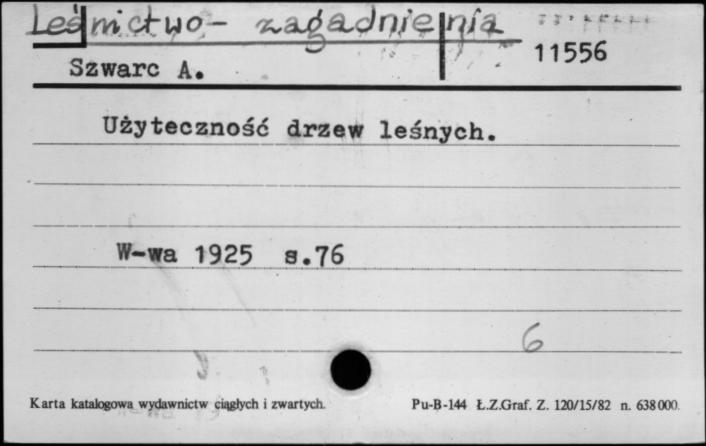 Leśnictwo - zagadnienia
11556
Szwarc A.
Użyteczność drzew leśnych.
W-wa 1925 s.76
6
Karta katalogowa wydawnictw ciągłych i zwartych. Pu-B-144 Ł.Z.Graf. Z. 120/15/82 n. 638000.